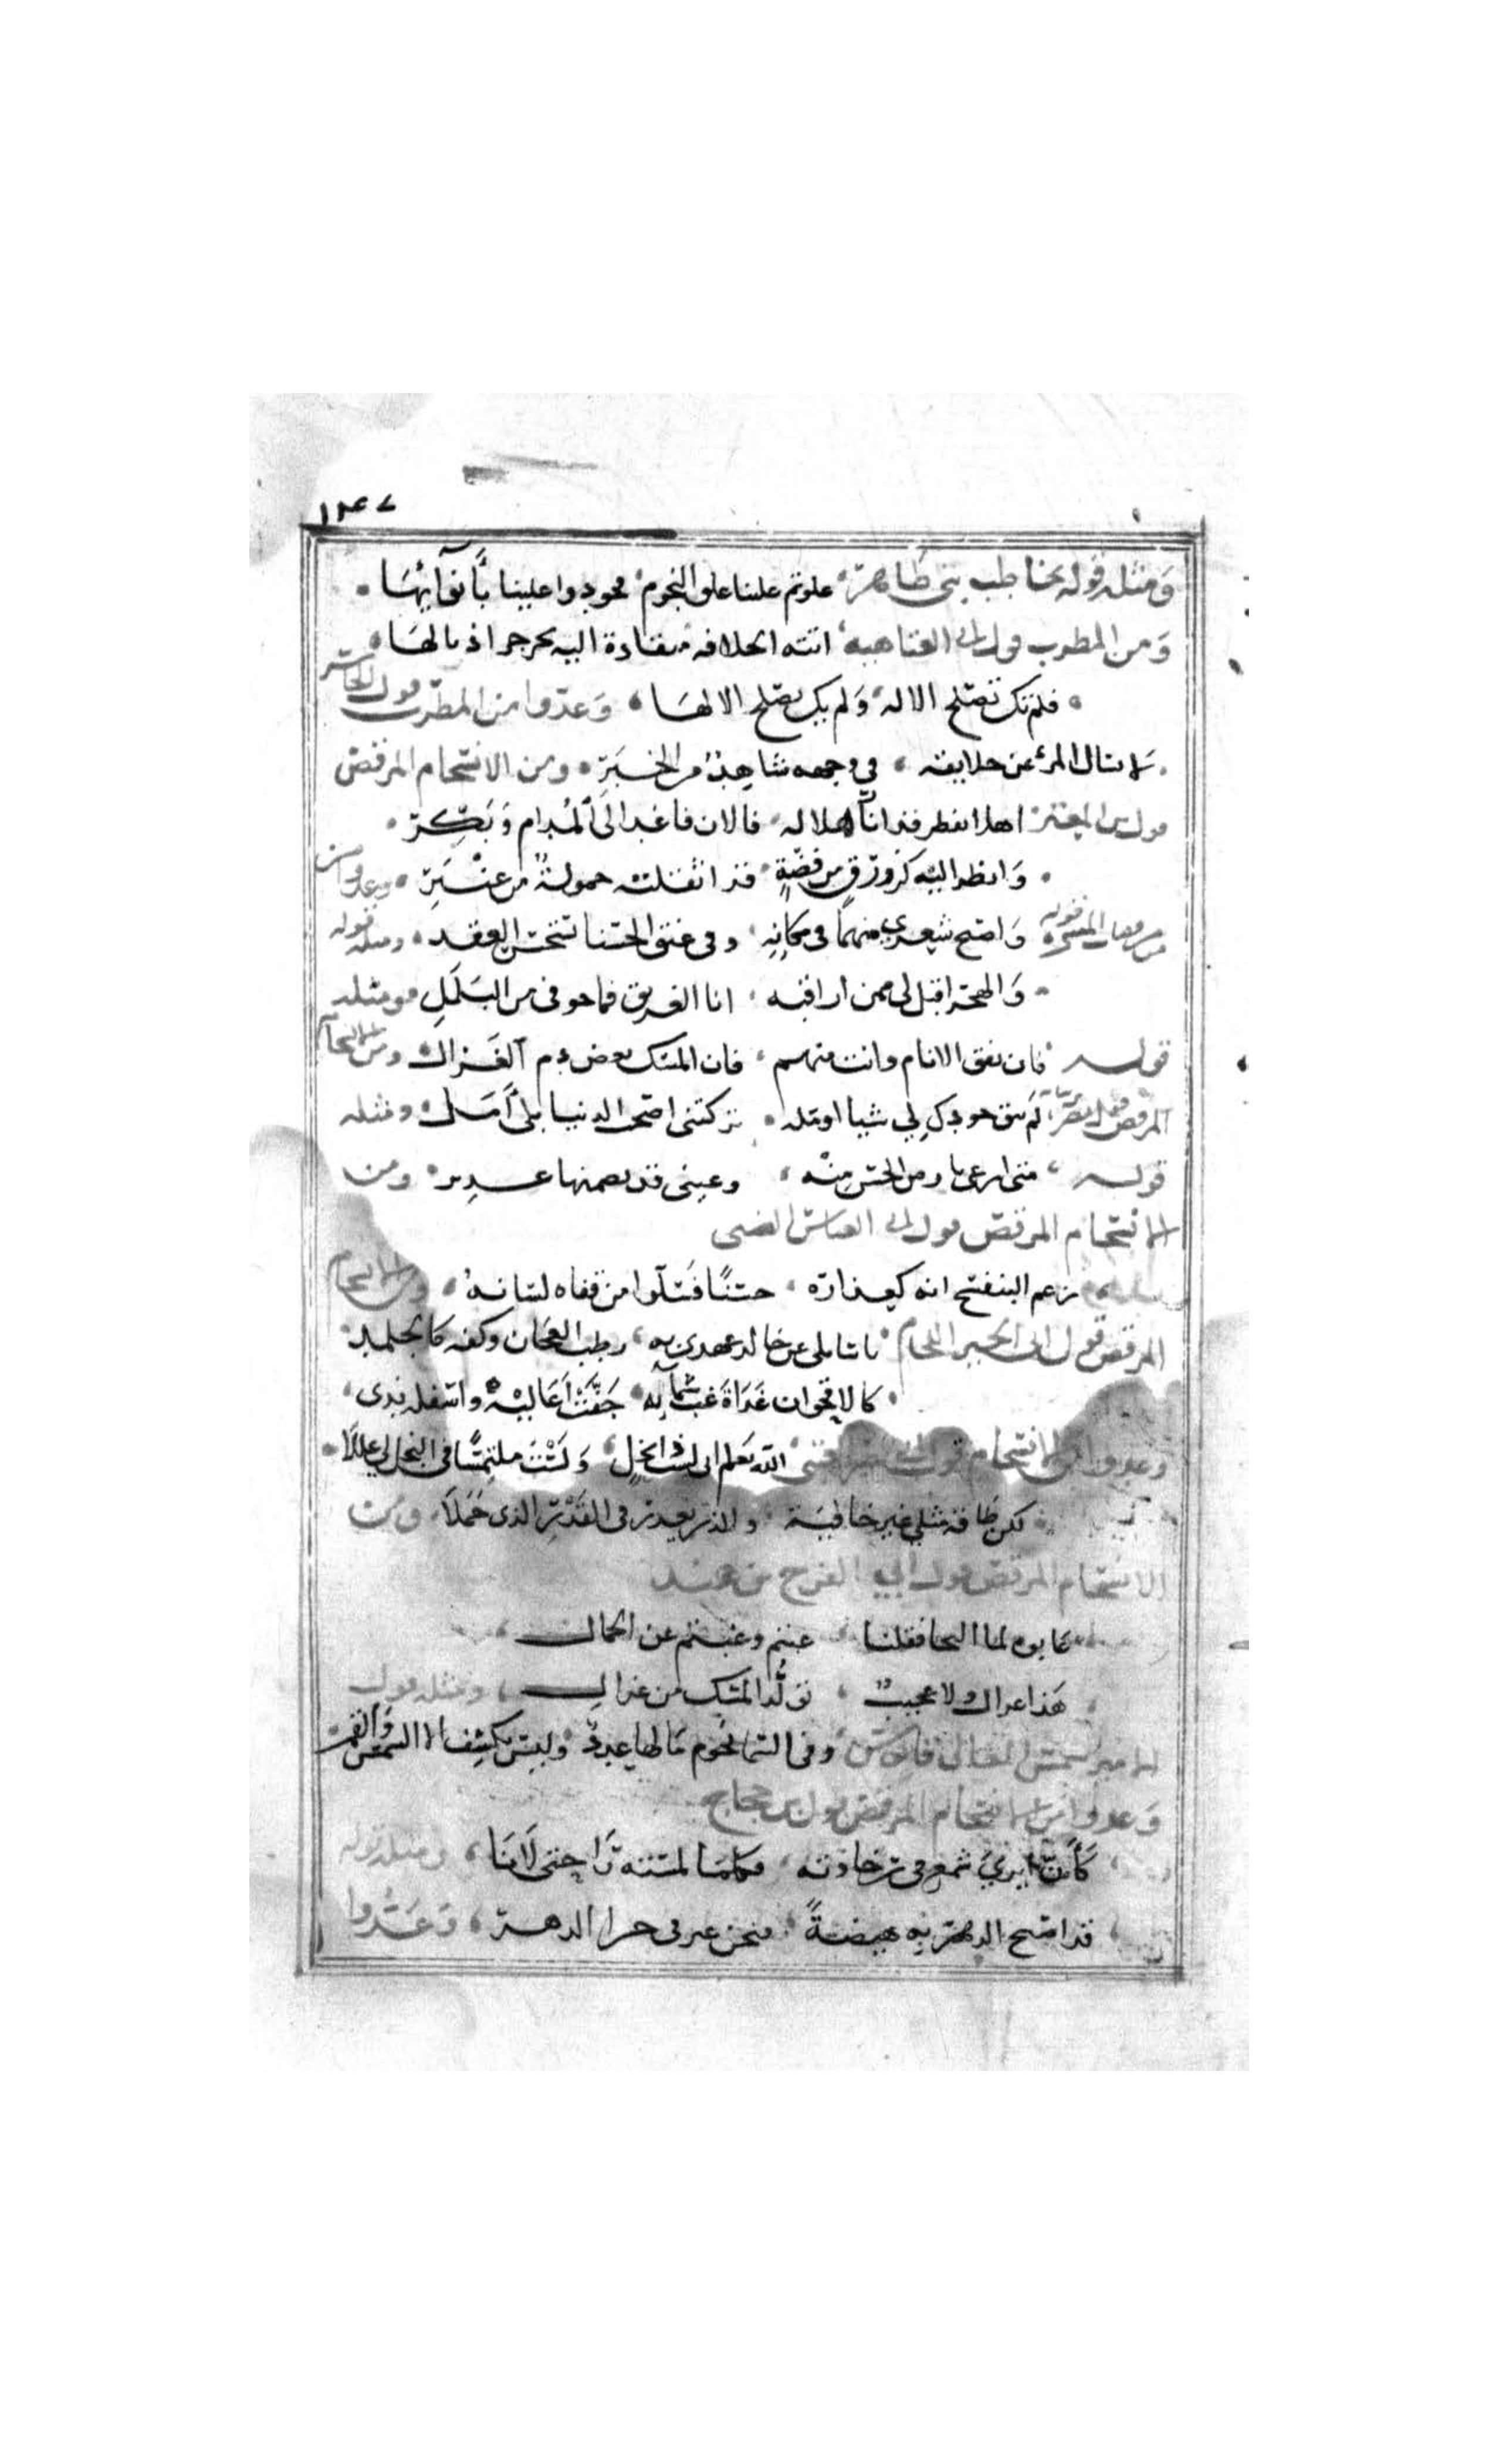 ١٢٤٧
ومثله قوله يخاطب بني طاهر علوتم علينا علو النجوم فجودوا علينا بأنوآئها
ومن المطرب قول ابي العتاهيه اتته الخلافه منقادة اليه تجرجر اذيالها
فلم تك تصلح الا له ولم يك يصلح الا لها وعدوا من المطرب قول الخاسر
لا تسال المرء عن خلايقه في وجهه شاهد من الخبر ومن الانسجام المرقص
قول بن المعتز اهلا بفطر قد اناف هلاله فالان فاغد الى المدام وبكر
وانظر اليه كزورق من فضة قد اثقلته حمولة من عنبر وعدوا من
مرقصات المتنبي قوله واصبح شعري منهما في مكانه وفي عنق الحسنا يستحسن العقد ومثله قوله
والهجر اقتل لي ممن اراقبه انا الغريق فما خوفي من البلل ومثله
قوله فان تفق الانام وانت منهم فان المسك بعض دم الغزال ومن الانسجام
المرقص لم يبق جودك لي شيا اومله تركتني اصحب الدنيا بلا امل ومثله
قوله متى ارعى رياض الحسن منه وعيني قد تضمنها غدير ومن
الانسجام المرقص قول ابي العباس الضبي
زعم البنفسج انه كعذاره حسنا فسلوا من قفاه لسانه ومن الانسجام
المرقص قول ابي الحسن اللحام يا سائلي عن خالد عهدي به رطب العجان وكفه كالجلمد
كالاقحوان غداة غب سمآئه جفت اعاليه واسفله ندى
وعدوا من الانسجام قول الله يعلم اني لست ذا بخل ولست ملتمسا في البخل لي عللا
لكن طاقة مثلي غير خافية والذر يعذر في القدر الذي حملا ومن
الانسجام المرقص قول ابي الفرج بن هندو
عابوه لما التحى فقلنا عبتم وغبتم عن الجمال
هذا غزال ولا عجيب تولد المسك من غزال ومثله قول
الامير شمس المعالي قابوس وفي السما نجوم ما لها عدد وليس يكسف الا الشمس والقمر
وعدوا من الانسجام المرقص قول بن حجاج
كأن ايري شمع من رخاوته فكلما لمسته راحتى لانا ومثله قوله
قد اصبح الدهر به هيضة فنحن غرقى في خرا الدهر وعدوا